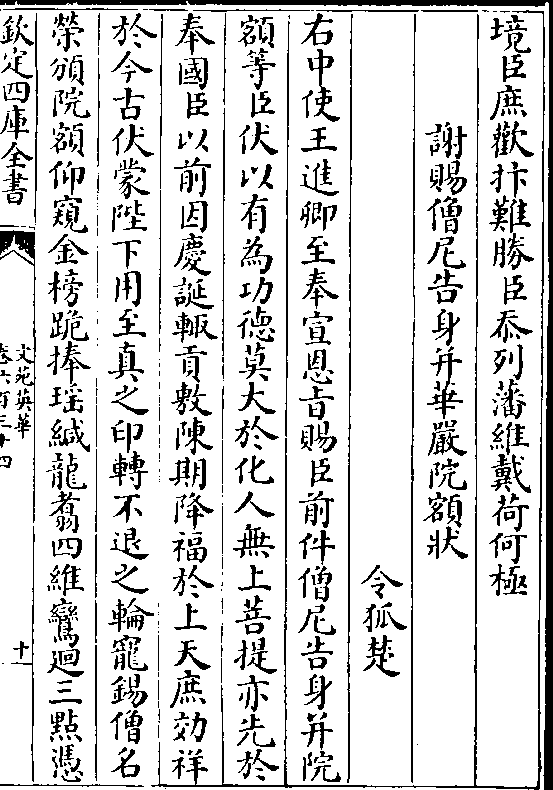 境臣庶歡抃難勝臣忝列藩維戴荷何極
謝賜僧尼告身并華嚴院額狀
令狐楚
右中使王進卿至奉宣恩旨賜臣前件僧尼告身并院
額等臣伏以有為功德莫大於化人無上菩提亦先於
奉國臣以前因慶誕輙貢敷陳期降福於上天庶効祥
於今古伏蒙陛下用至真之印轉不退之輪寵錫僧名
榮頒院額仰窺金榜跪捧瑶緘龍翥四維鸞迴三點憑
欽定四庫全書
文苑英華
卷六百三十四
十一